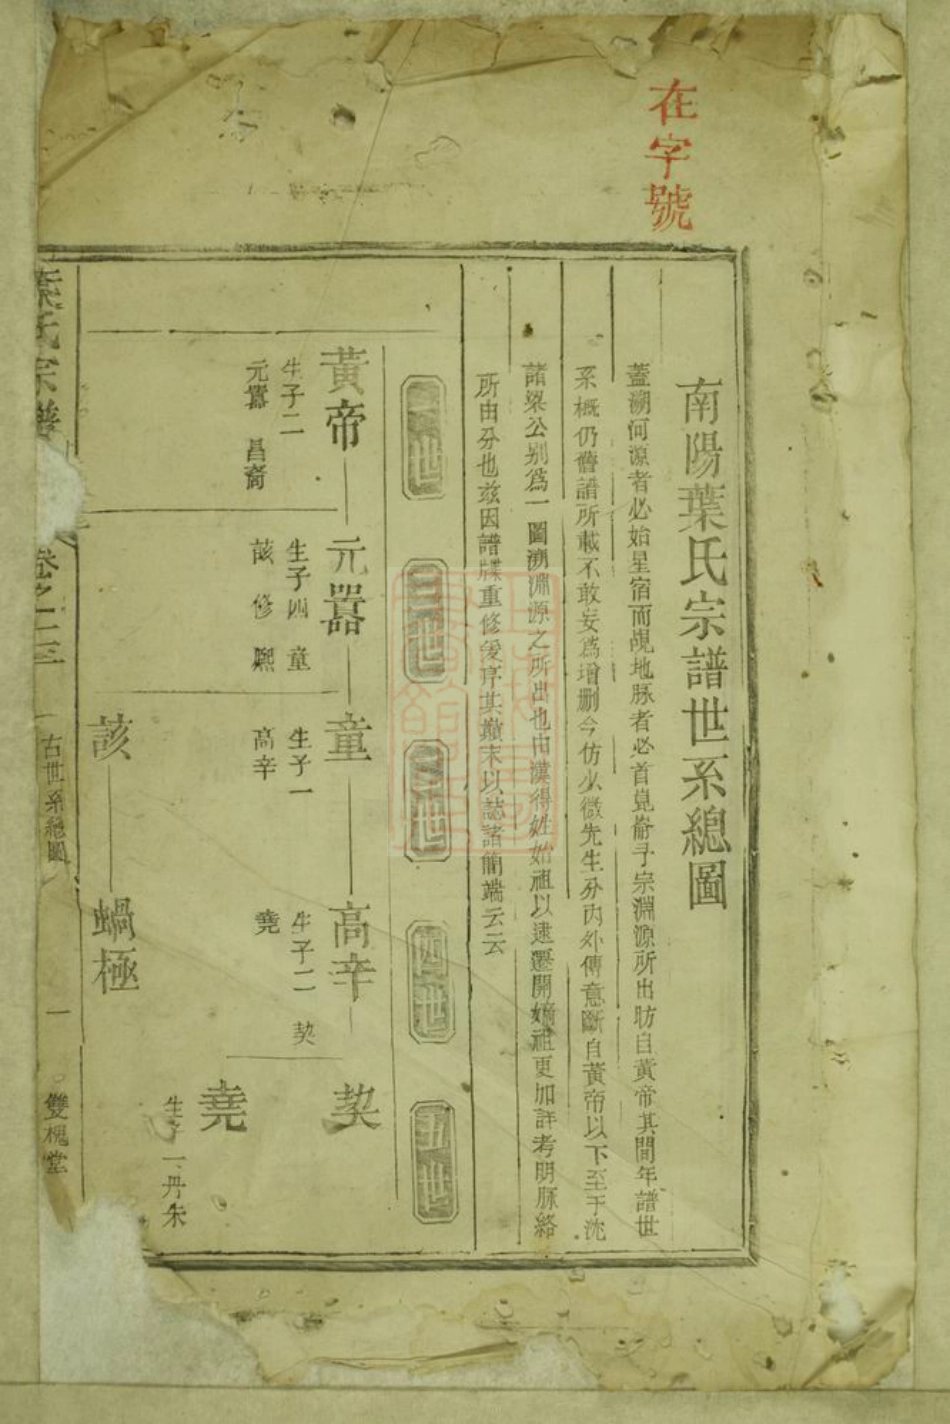 在字號
南陽葉氏宗譜世系總圖
蓋溯河源者必始星宿而覘地脉者必首崑崙予宗淵源所出昉自黃帝其間年譜世
系概仍舊譜所載不敢妄爲增刪今仿少微先生分內外傳意斷自黃帝以下至于沈
諸梁公别爲一圖溯淵源之所出也由漢得姓始祖以逮遷開嫡祖更加詳考明脉絡
所由分也兹因譜牒重修爰序其巔末以誌諸簡端云云
一世
二世
三世
四世
五世
黃帝
生子二
元囂 昌裔
元囂
生子四 童
該 修 熈
童
生子一
高辛
高辛
生子二 契
堯
契
堯
生子一丹朱
該
蝸極
葉氏宗譜
卷之一二三
古世系總圖
一
雙槐堂